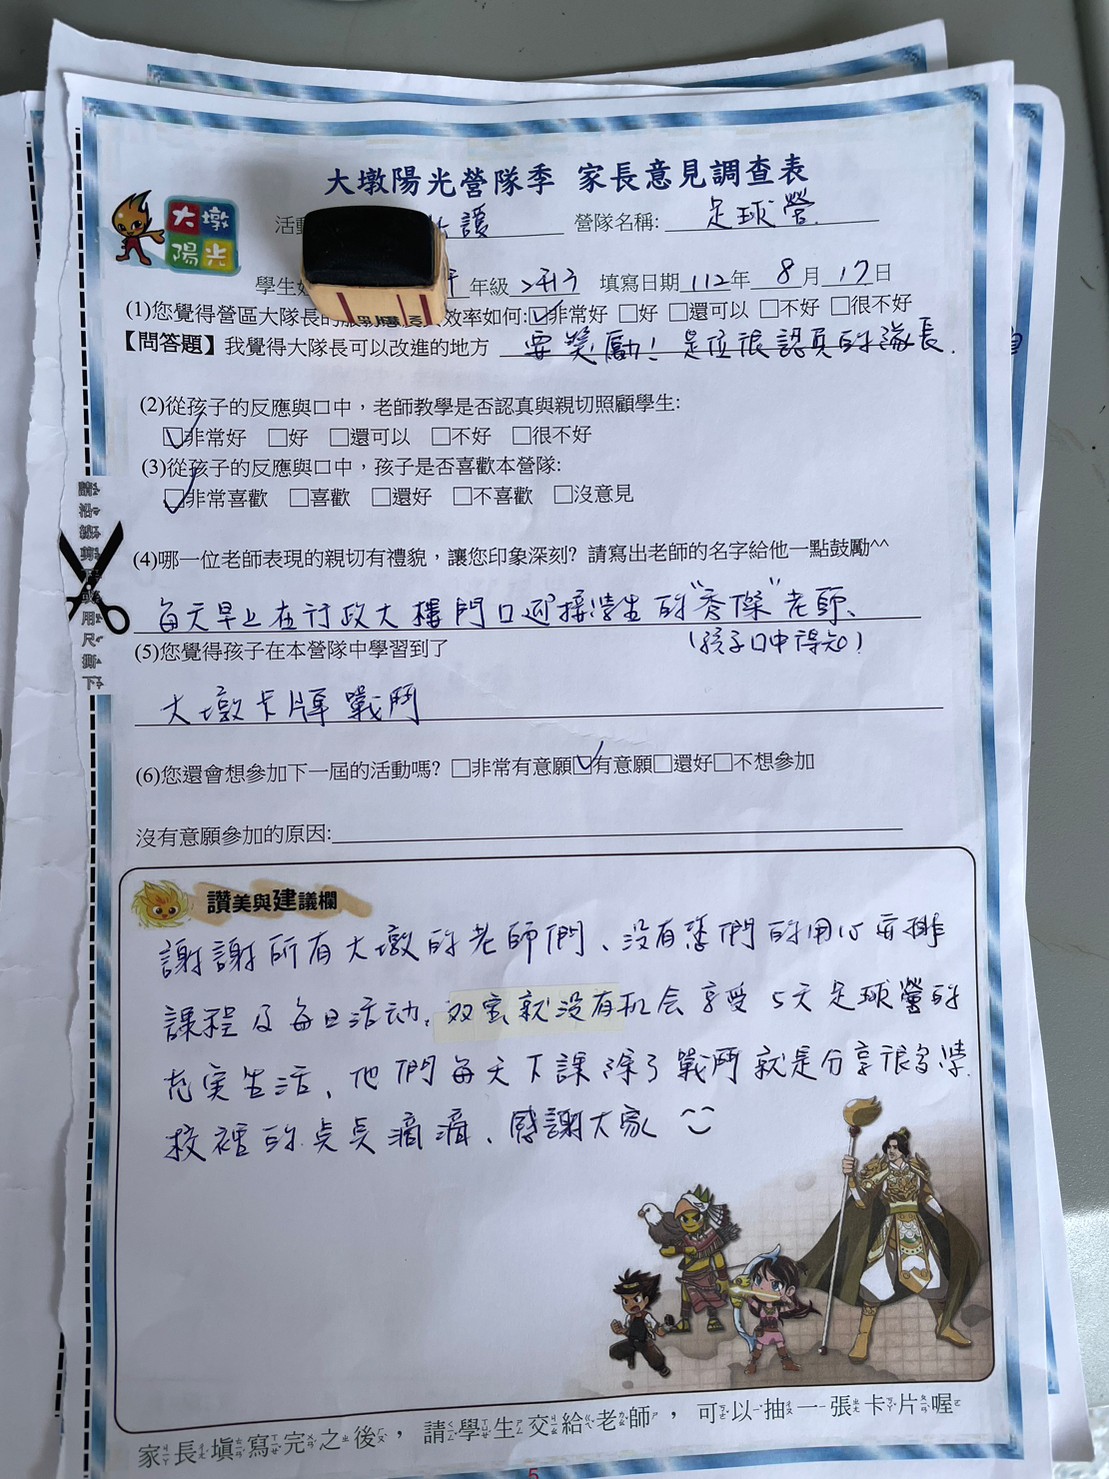 大墩陽光營隊季 家長意見調查表
大墩
陽光
活動 護 營隊名稱: 足球營
學生姓 年級 2升3 填寫日期 112年 8月 17日
(1)您覺得營區大隊長的服務 效率如何:☑非常好 □好 □還可以 □不好 □很不好
【問答題】我覺得大隊長可以改進的地方 要獎勵! 是位很認真的隊長.
(2)從孩子的反應與口中,老師教學是否認真與親切照顧學生:
☑非常好 □好 □還可以 □不好 □很不好
(3)從孩子的反應與口中,孩子是否喜歡本營隊:
☑非常喜歡 □喜歡 □還好 □不喜歡 □沒意見
(4)哪一位老師表現的親切有禮貌,讓您印象深刻? 請寫出老師的名字給他一點鼓勵^^
每天早上在行政大樓門口迎接學生的"秀傑"老師、
(孩子口中得知)
(5)您覺得孩子在本營隊中學習到了
大墩卡牌戰鬥
(6)您還會想參加下一屆的活動嗎? □非常有意願☑有意願□還好□不想參加
沒有意願參加的原因:
請沿線剪下或用尺撕下
讚美與建議欄
謝謝所有大墩的老師們、沒有您們的用心安排
課程及每日活動,双寶就没有机会享受5天足球營的
充実生活、他們每天下課除了戰鬥就是分享很多學
校裡的点点滴滴、感謝大家
家長填寫完之後,請學生交給老師,可以抽一張卡片喔
5